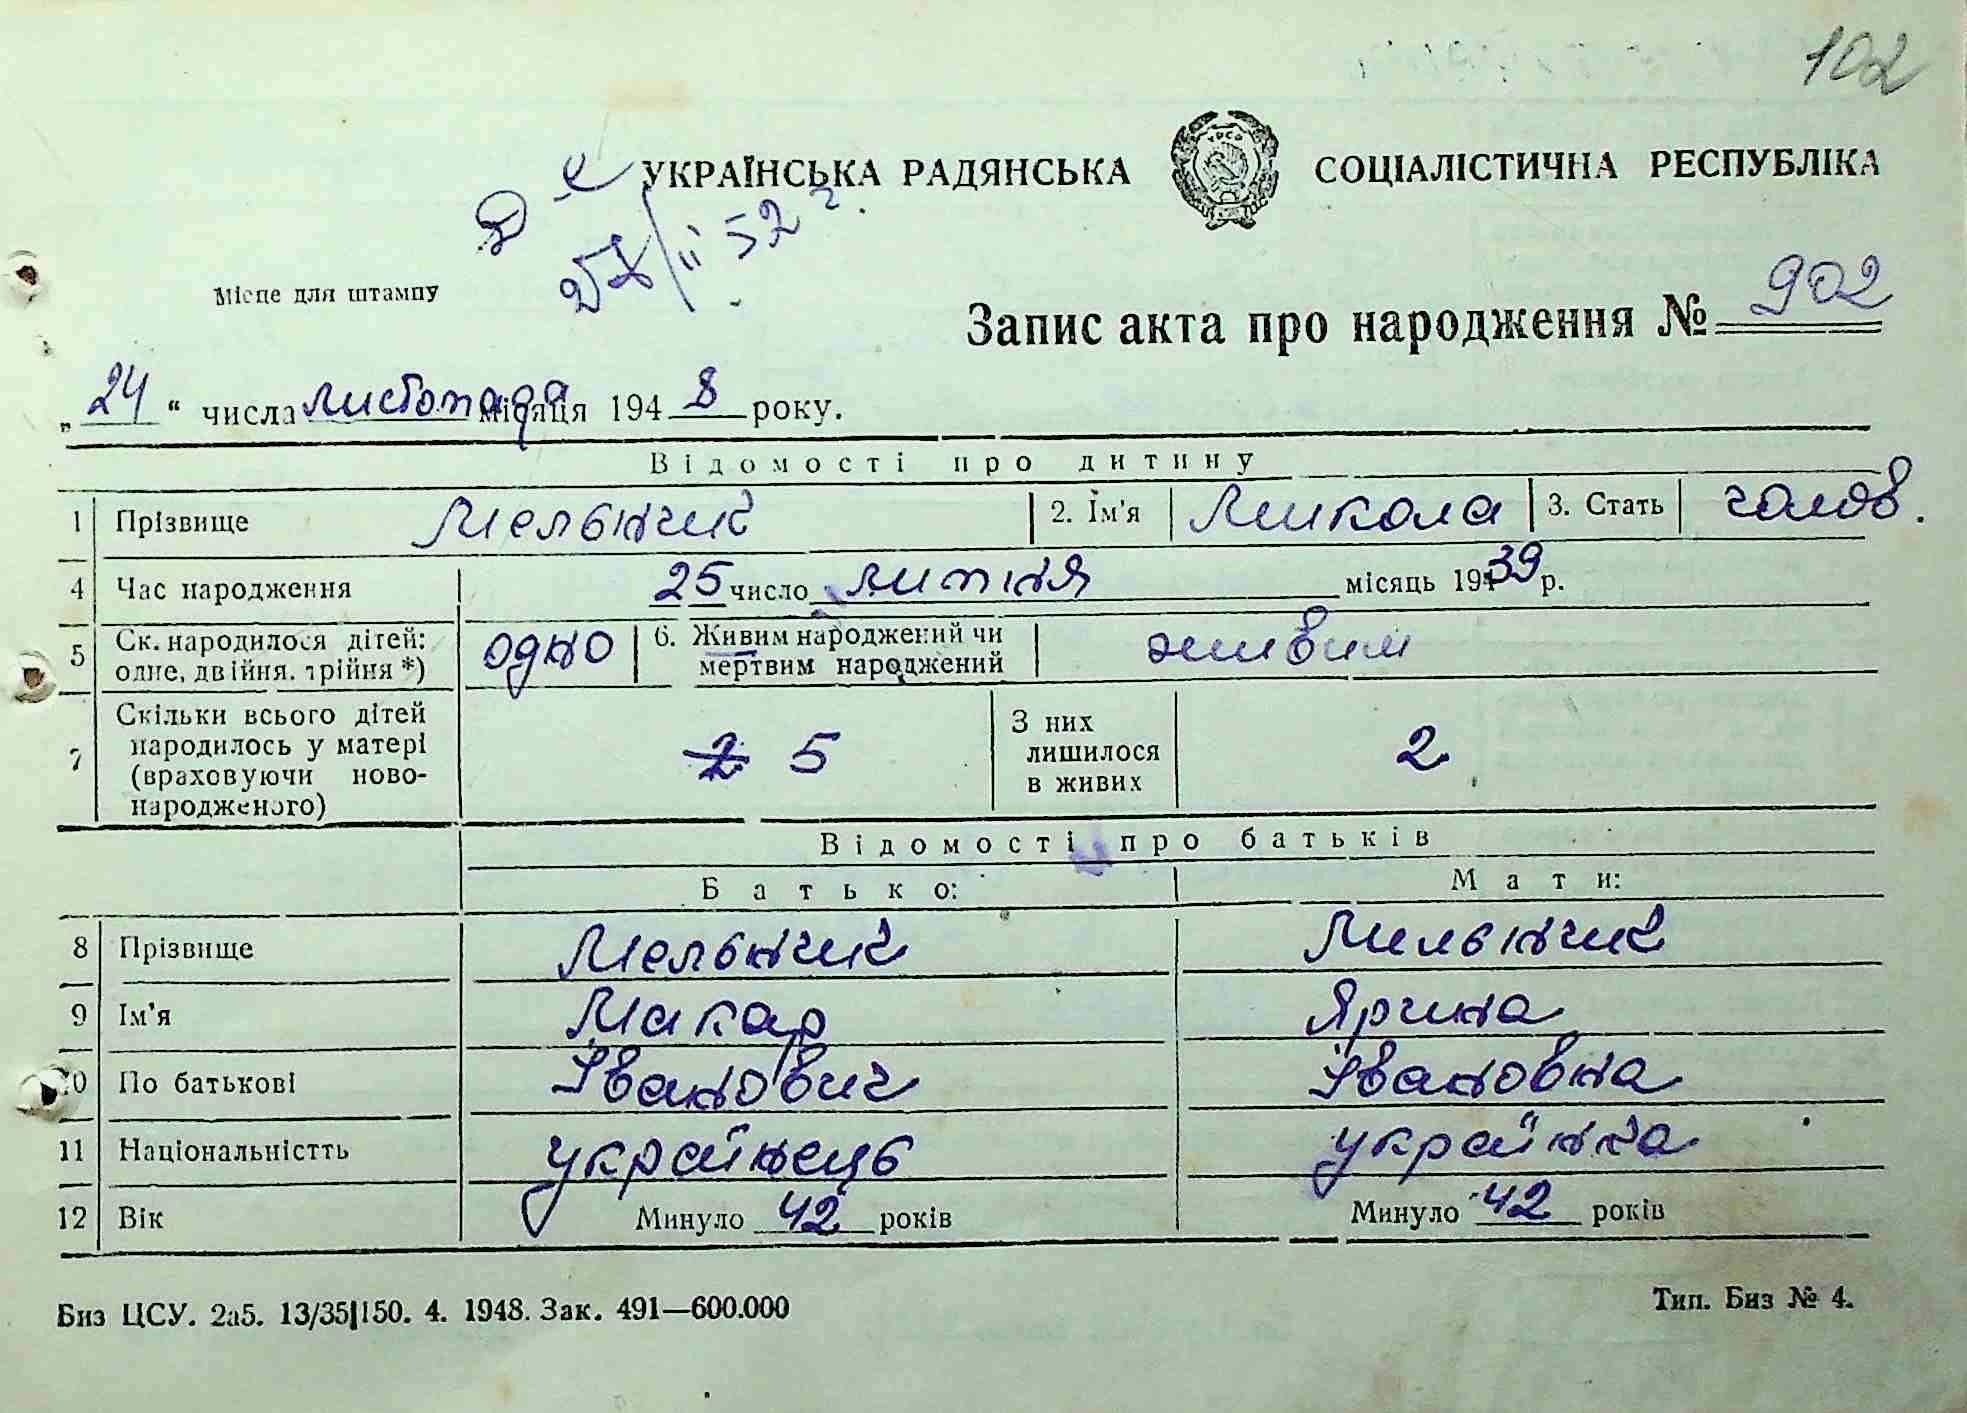 102
УКРАЇНСЬКА РАДЯНСЬКА СОЦІАЛІСТИЧНА РЕСПУБЛІКА
УРСР
II 52
Місце для штампу
Запис акта про народження № 902
„24“ числа листопада місяця 1948 року.
Відомості про дитину
1 Прізвище Мельничик 2. Ім'я Микола 3. Стать чолов.
4 Час народження 25 число липня місяць 1939 р.
5 Ск. народилося дітей: одно 6. Живим народжений чи живим
одне, двійня, трійня *) мертвим народжений
7 Скільки всього дітей 2 5 З них 2
народилось у матері лишилося
(враховуючи ново- в живих
народженого)
Відомості про батьків
Батько: Мати:
8 Прізвище Мельничик Мильничик
9 Ім'я Макар Ярина
10 По батькові Іванович Івановна
11 Національністть українець українка
12 Вік Минуло 42 років Минуло 42 років
Биз ЦСУ. 2а5. 13/35|150. 4. 1948. Зак. 491—600.000 Тип. Биз № 4.